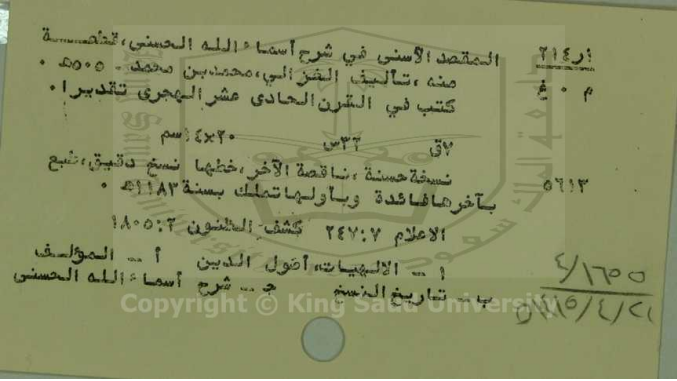 ٢١٤ر أ المقصد الأسنى في شرح أسماء الله الحسنى، قطعة
م ٠ غ منه، تأليف الغزالي، محمد بن محمد - ٥٠٥هـ ٠
كتب في القرن الحادي عشر الهجري تقديرا ٠
٧ق ٢٣س ٢٠×١٤سم
٥٦١٣ نسخة حسنة، ناقصة الآخر، خطها نسخ دقيق، طبع
بآخرها فائدة وبأولها تملك بسنة ١١٨٣هـ ٠
الاعلام ٢٤٧:٧ كشف الظنون ١٨٠٥:٢
١ - الالهيات، أصول الدين أ - المؤلف
ب - تاريخ النسخ ج - شرح أسماء الله الحسنى
٤/١٦٥٥
Copyright © King Saud University